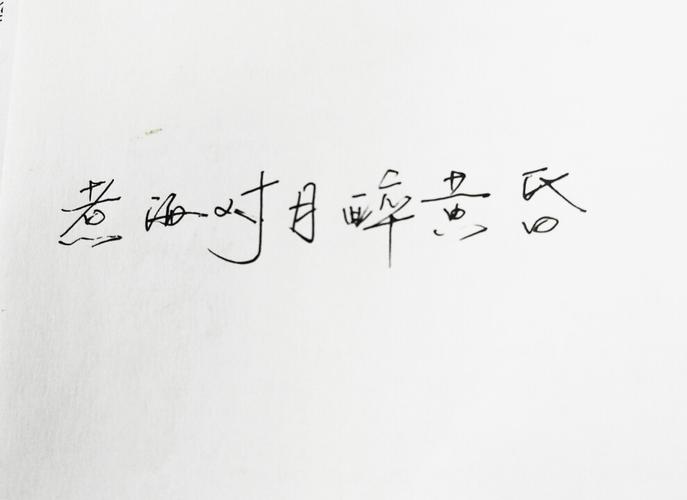 煮酒对月醉黄昏